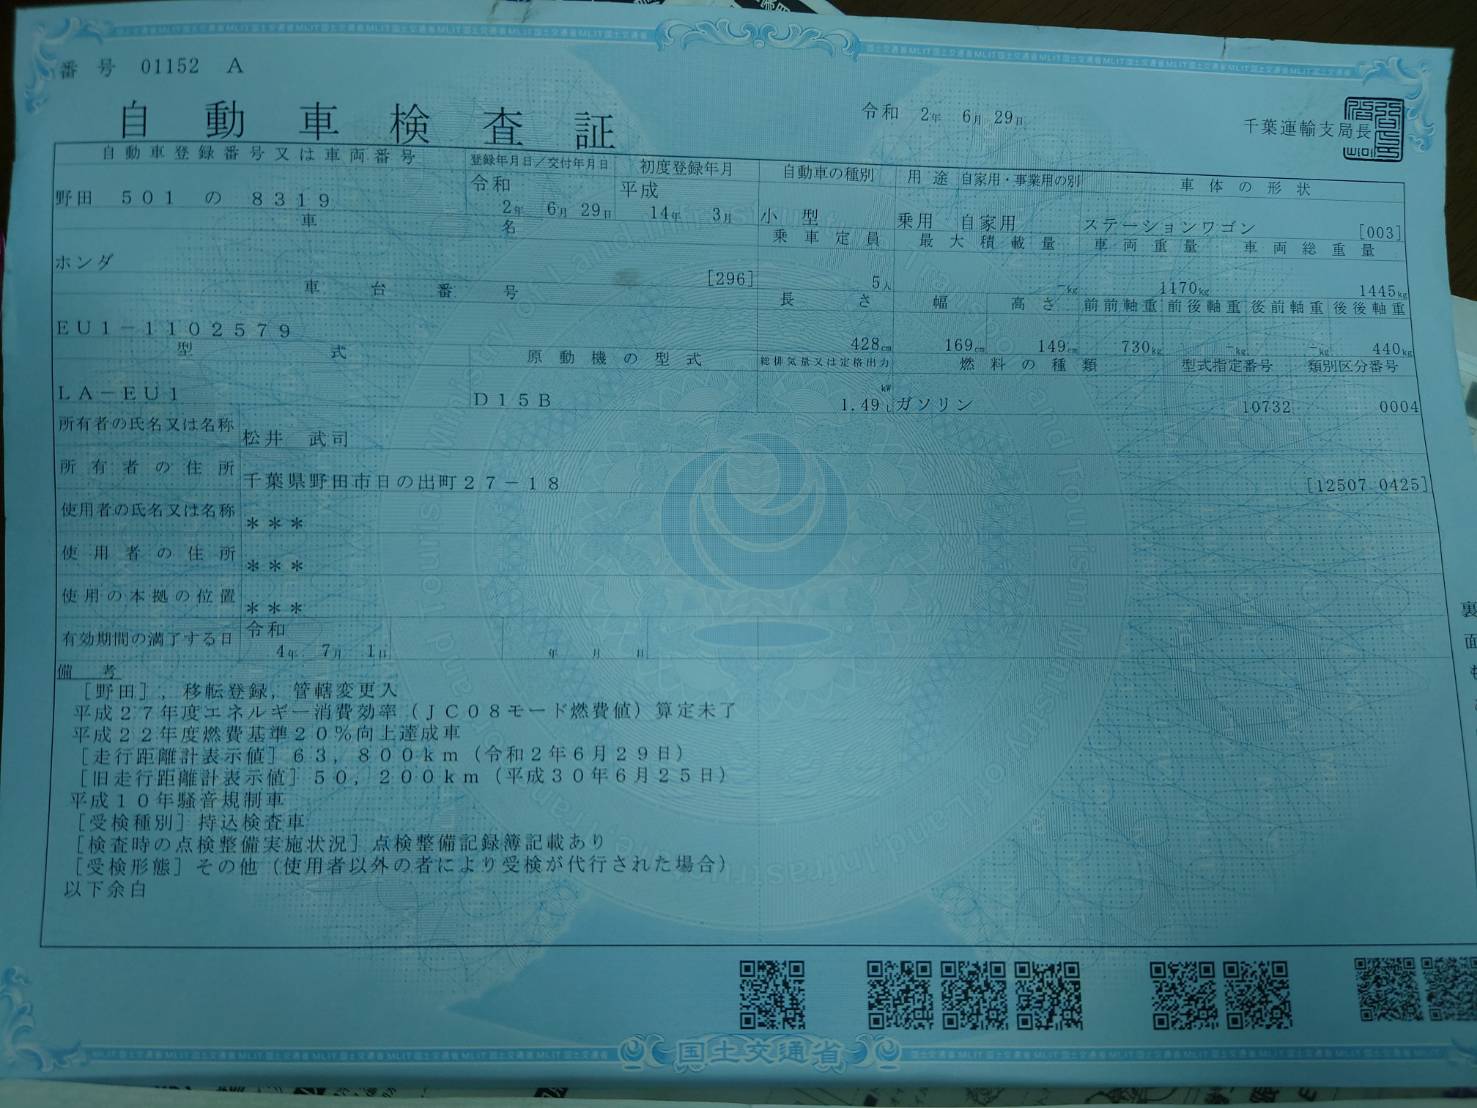 番号 01152 A
自動車検査証
令和 2年 6月 29日
千葉運輸支局長
自動車登録番号又は車両番号 登録年月日／交付年月日 初度登録年月 自動車の種別 用途 自家用・事業用の別 車体の形状
野田 501 の 8319 令和 2年 6月 29日 平成 14年 3月 小型 乗用 自家用 ステーションワゴン [003]
車名 乗車定員 最大積載量 車両重量 車両総重量
ホンダ [296] 5人 -kg 1170kg 1445kg
車台番号 長さ 幅 高さ 前前軸重 前後軸重 後前軸重 後後軸重
EU1-1102579 428cm 169cm 149cm 730kg -kg -kg 440kg
型式 原動機の型式 総排気量又は定格出力 燃料の種類 型式指定番号 類別区分番号
LA-EU1 D15B 1.49 kW L ガソリン 10732 0004
所有者の氏名又は名称 松井 武司
所有者の住所 千葉県野田市日の出町27-18 [12507 0425]
使用者の氏名又は名称 ＊＊＊
使用者の住所 ＊＊＊
使用の本拠の位置 ＊＊＊
有効期間の満了する日 令和 4年 7月 1日 年 月 日
備考
[野田]，移転登録，管轄変更入
平成27年度エネルギー消費効率（JC08モード燃費値）算定未了
平成22年度燃費基準20％向上達成車
[走行距離計表示値] 63，800km（令和2年6月29日）
[旧走行距離計表示値] 50，200km（平成30年6月25日）
平成10年騒音規制車
[受検種別] 持込検査車
[検査時の点検整備実施状況] 点検整備記録簿記載あり
[受検形態] その他（使用者以外の者により受検が代行された場合）
以下余白
国土交通省
裏
面
も